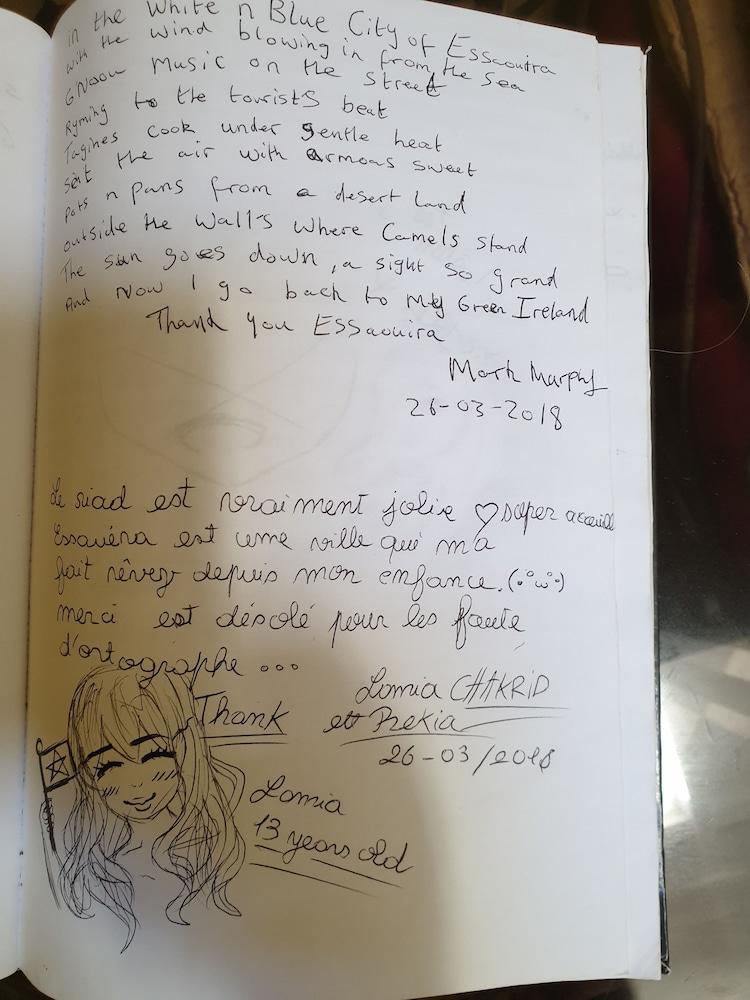 in the White n Blue City of Essaouira
with the wind blowing in from the Sea
GNaou Music on the street
Ryming to the tourists beat
Tagines cook under gentle heat
Sent the air with armoas sweet
Pots n pans from a desert Land
outside the Wall's Where Camels stand
The sun goes down, a sight so grand
And Now I go back to My Green Ireland
Thank you Essaouira
Mark Murphy
26-03-2018
Le riad est vraiment jolie ♡ super accueille
Essauéra est une ville qui m'a
fait rêver depuis mon enfance. (·°ω°·)
merci est désolé pour les faute
d'ortographe ...
Lamia CHAKRID
Thank et Rekia
26-03/2018
Lamia
13 years old